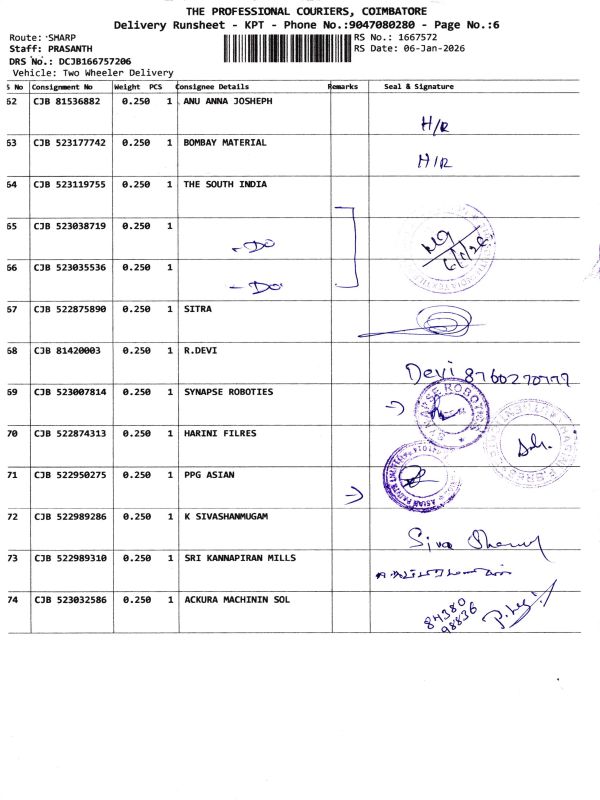 THE PROFESSIONAL COURIERS, COIMBATORE
Delivery Runsheet - KPT - Phone No.:9047080280 - Page No.:6
Route: SHARP
RS No.: 1667572
Staff: PRASANTH
RS Date: 06-Jan-2026
DRS No.: DCJB166757206
Vehicle: Two Wheeler Delivery
S No Consignment No Weight PCS Consignee Details Remarks Seal & Signature
62 CJB 81536882 0.250 1 ANU ANNA JOSHEPH
H/R
63 CJB 523177742 0.250 1 BOMBAY MATERIAL
H/R
64 CJB 523119755 0.250 1 THE SOUTH INDIA
65 CJB 523038719 0.250 1
- Do
6/1/26
66 CJB 523035536 0.250 1
- Do
67 CJB 522875890 0.250 1 SITRA
68 CJB 81420003 0.250 1 R.DEVI
Devi 8760270777
69 CJB 523007814 0.250 1 SYNAPSE ROBOTIES
SYNAPSE ROBOTICS
70 CJB 522874313 0.250 1 HARINI FILRES
71 CJB 522950275 0.250 1 PPG ASIAN
72 CJB 522989286 0.250 1 K SIVASHANMUGAM
Siva
73 CJB 522989310 0.250 1 SRI KANNAPIRAN MILLS
74 CJB 523032586 0.250 1 ACKURA MACHININ SOL
84380
98836